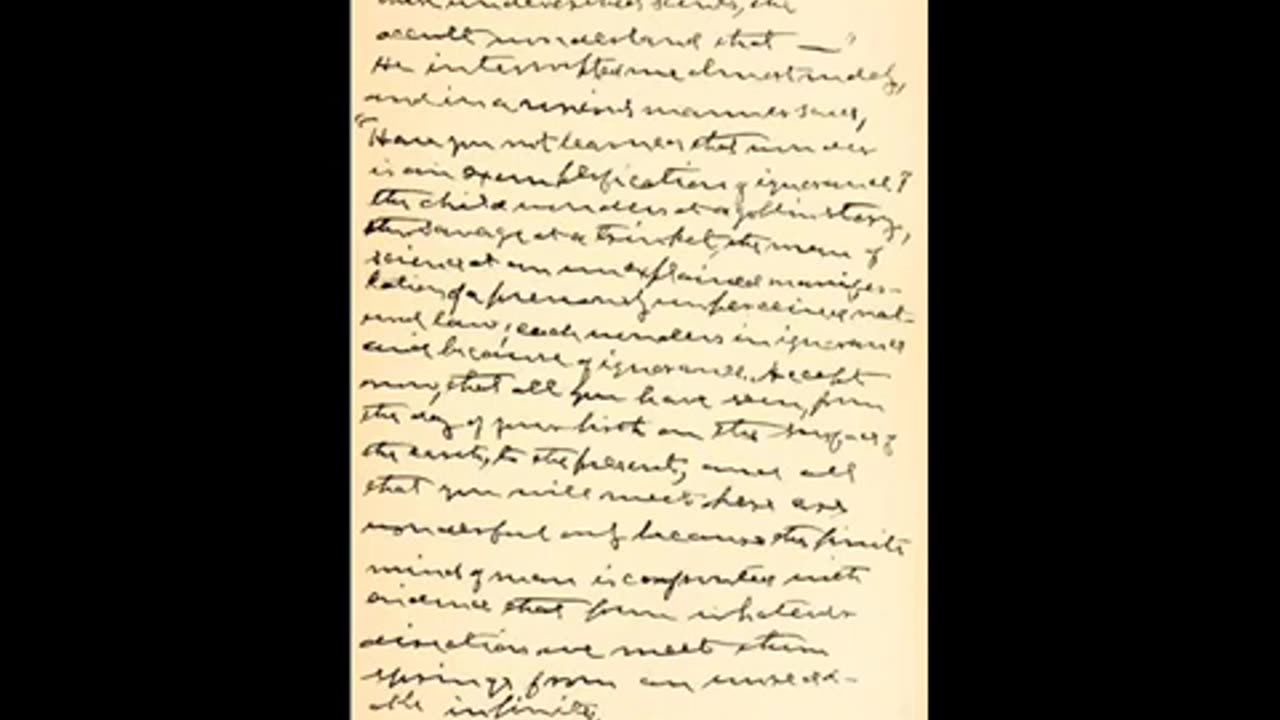 occult wonderland that —"
He interrupted me almost rudely,
and in a serious manner said,
"Have you not learned that wonder
is an exemplification of ignorance?
the child wonders at a goblin story,
the savage at a trinket, the man of
science at an unexplained manifes-
tation of a previously unperceived nat-
ural law; each wonders in ignorance
and because of ignorance. Accept
now, that all you have seen, from
the day of your birth on the surface of
the earth, to the present, and all
that you will meet here are
wonderful only because the finite
mind of man is confronted with
evidence that from whatever
direction we meet them
springs from an unread-
able infinity.